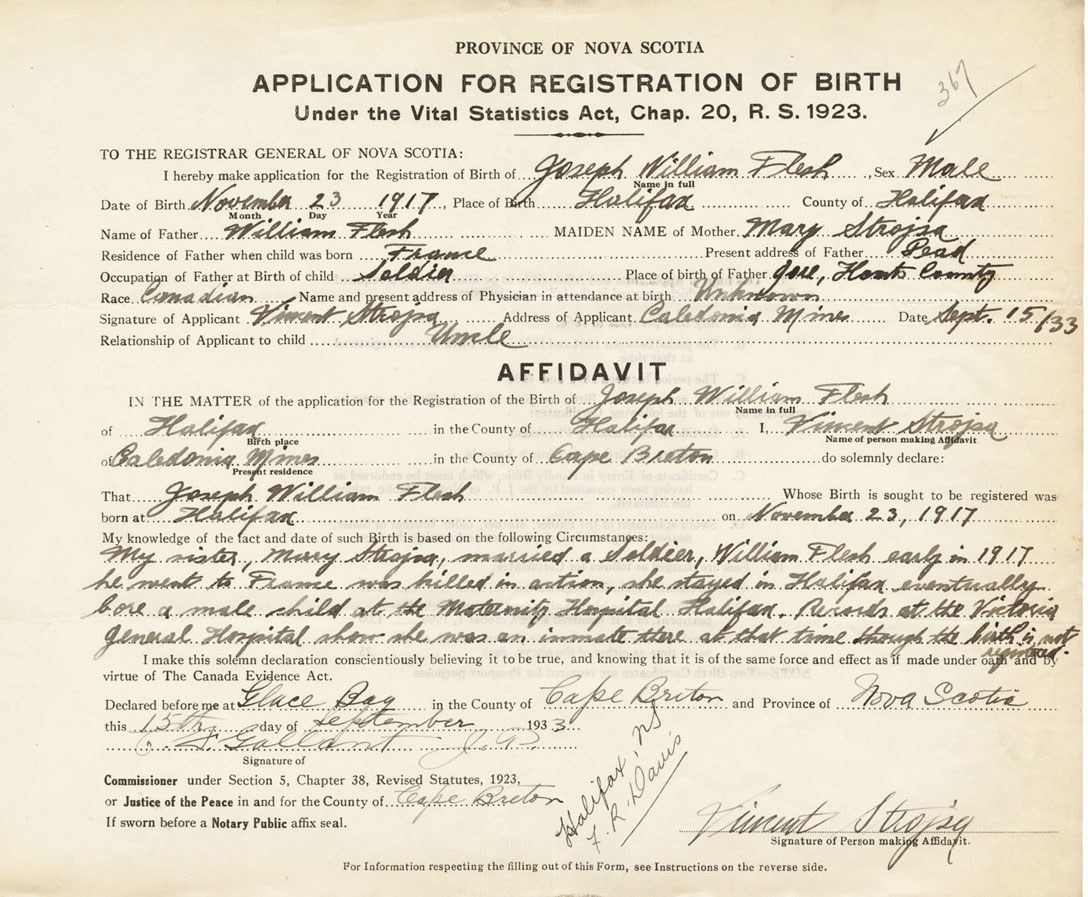 PROVINCE OF NOVA SCOTIA
367
APPLICATION FOR REGISTRATION OF BIRTH
Under the Vital Statistics Act, Chap. 20, R. S. 1923.
TO THE REGISTRAR GENERAL OF NOVA SCOTIA:
I hereby make application for the Registration of Birth of Joseph William Flesh, Sex Male
Name in full
Date of Birth November 23 1917, Place of Birth Halifax County of Halifax
Month Day Year
Name of Father William Flesh MAIDEN NAME of Mother Mary Strojsa
Residence of Father when child was born France Present address of Father Dead
Occupation of Father at Birth of child Soldier Place of birth of Father Gore, Hants County
Race Canadian Name and present address of Physician in attendance at birth Unknown
Signature of Applicant Vincent Strojsa Address of Applicant Caledonia Mines Date Sept. 15/33
Relationship of Applicant to child Uncle
AFFIDAVIT
IN THE MATTER of the application for the Registration of the Birth of Joseph William Flesh
Name in full
of Halifax in the County of Halifax I, Vincent Strojsa
Birth place Name of person making Affidavit
of Caledonia Mines in the County of Cape Breton do solemnly declare:
Present residence
That Joseph William Flesh Whose Birth is sought to be registered was
born at Halifax on November 23, 1917
My knowledge of the fact and date of such Birth is based on the following Circumstances:
My sister, Mary Strojsa, married a Soldier, William Flesh early in 1917
he went to France was killed in action, she stayed in Halifax eventually
bore a male child at the Maternity Hospital Halifax. Records at the Victoria
General Hospital show she was an inmate there at that time though the birth is not
registered.
I make this solemn declaration conscientiously believing it to be true, and knowing that it is of the same force and effect as if made under oath and by
virtue of The Canada Evidence Act.
Declared before me at Glace Bay in the County of Cape Breton and Province of Nova Scotia
this 15th day of September 1933
Gallant J.P.
Signature of
Commissioner under Section 5, Chapter 38, Revised Statutes, 1923,
or Justice of the Peace in and for the County of Cape Breton
If sworn before a Notary Public affix seal.
Halifax, NS
F. R. Davis
Vincent Strojsa
Signature of Person making Affidavit.
For Information respecting the filling out of this Form, see Instructions on the reverse side.